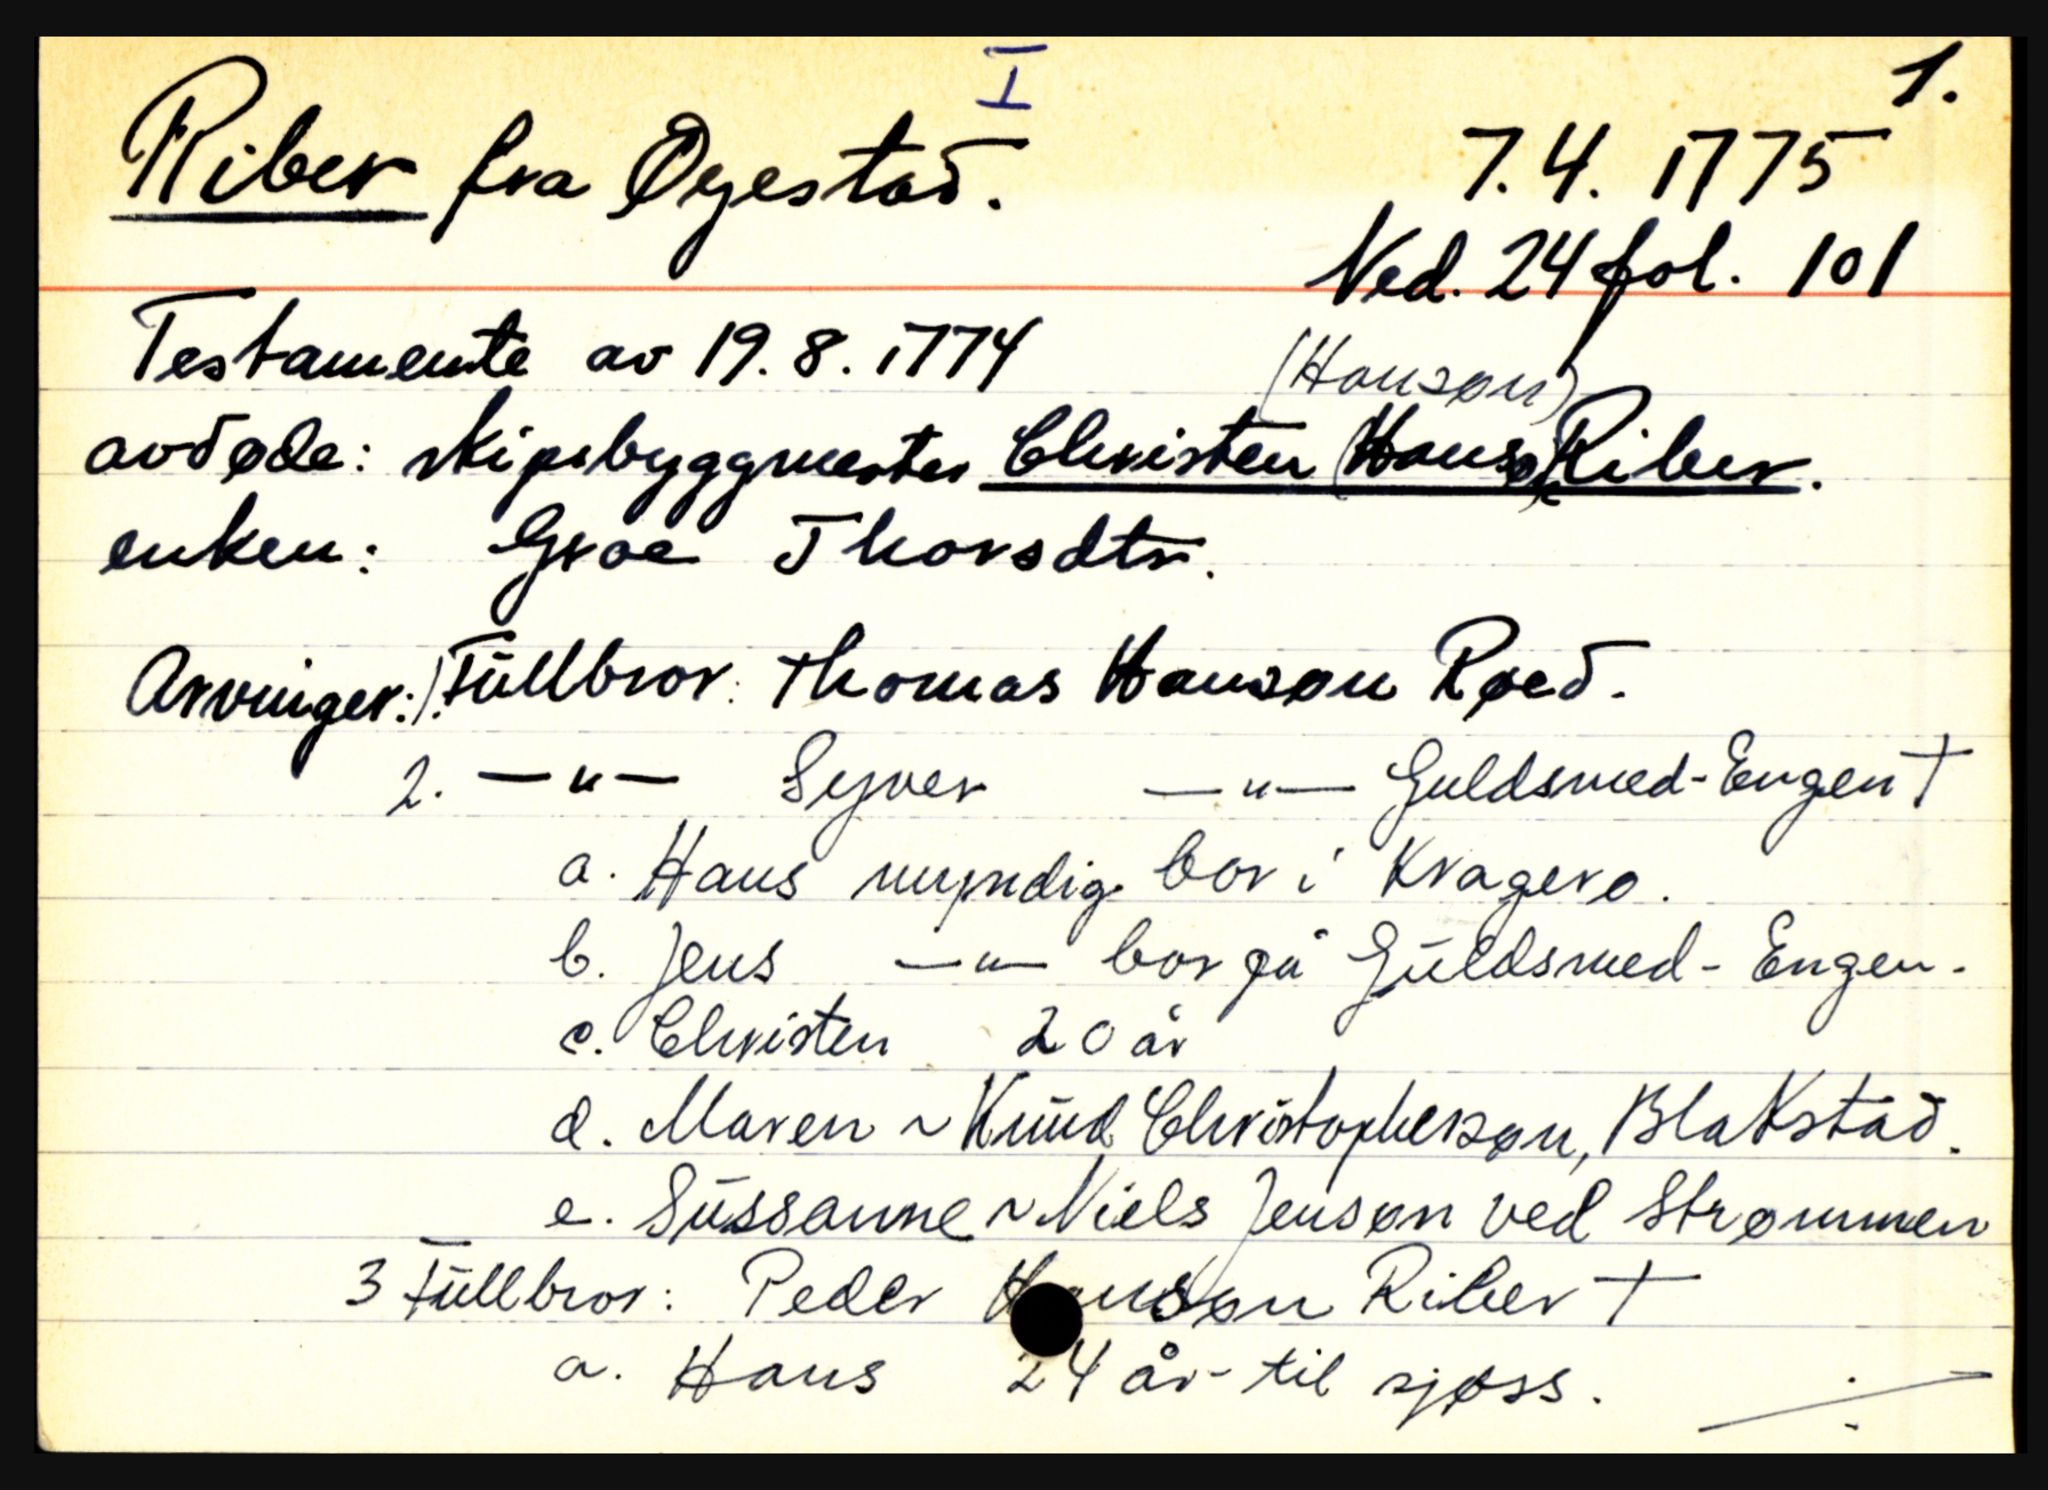 I
1.
Riber fra Øyestad.
7.4. 1775
Ned. 24 fol. 101
Testamente av 19.8.1774
(Hansøn)
avdøde: skipsbyggmester Christen (Hansøn) Riber.
enken: Groe Thorsdtr.
Arvinger: 1. Fullbror: Thomas Hansøn Røed.
2. —"— Syver —"— Guldsmed-Engen †
a. Hans myndig bor i Kragerø.
b. Jens —"— bor på Guldsmed-Engen.
c. Christen 20 år
d. Maren ~ Knud Christophersøn, Blakstad.
e. Sussanne ~ Niels Jensøn ved Strømmen
3 Fullbror: Peder Hansøn Riber †
a. Hans 24 år - til sjøss.